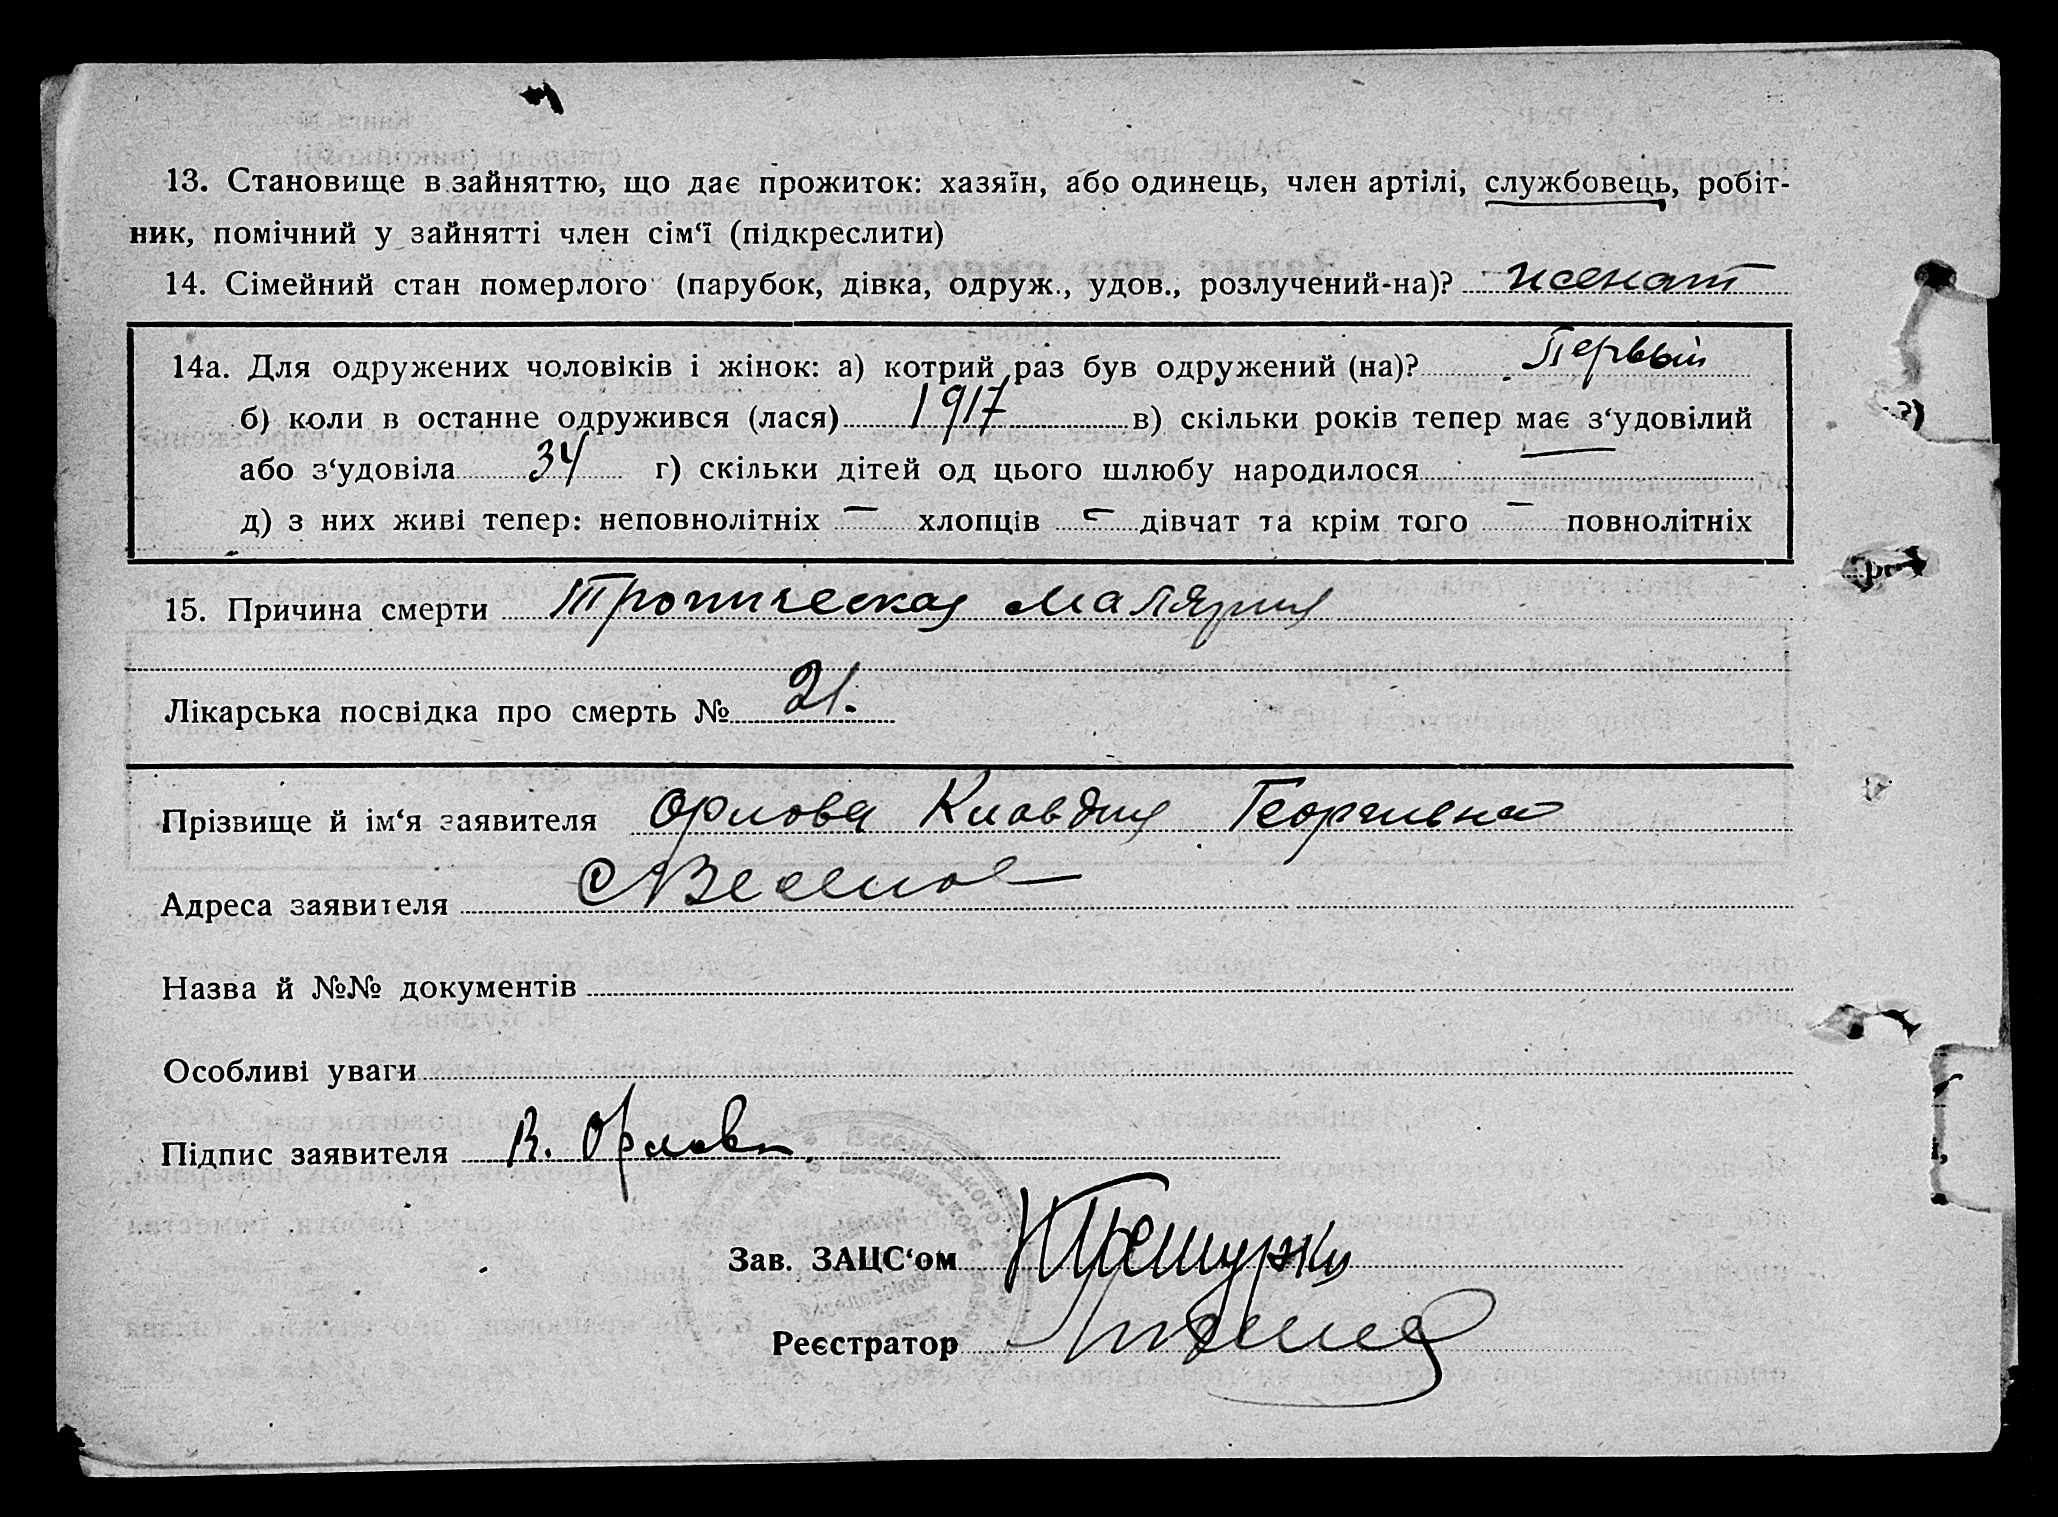 13. Становище в зайняттю, що дає прожиток: хазяїн, або одинець, член артілі, службовець, робіт-
ник, помічний у зайнятті член сім‘ї (підкреслити)
14. Сімейний стан померлого (парубок, дівка, одруж., удов., розлучений-на)? женат
14а. Для одружених чоловіків і жінок: а) котрий раз був одружений (на)? Первый
б) коли в останнє одружився (лася) 1917 в) скільки років тепер має з‘удовілий
або з‘удовіла 34 г) скільки дітей од цього шлюбу народилося —
д) з них живі тепер: неповнолітніх — хлопців — дівчат та крім того — повнолітніх
15. Причина смерти Тропическая малярия
Лікарська посвідка про смерть № 21.
Прізвище й ім‘я заявителя Орлова Клавдия Георгиевна
Адреса заявителя с Веселое
Назва й №№ документів
Особливі уваги
Підпис заявителя К. Орлова
Зав. ЗАЦС‘ом
Реєстратор